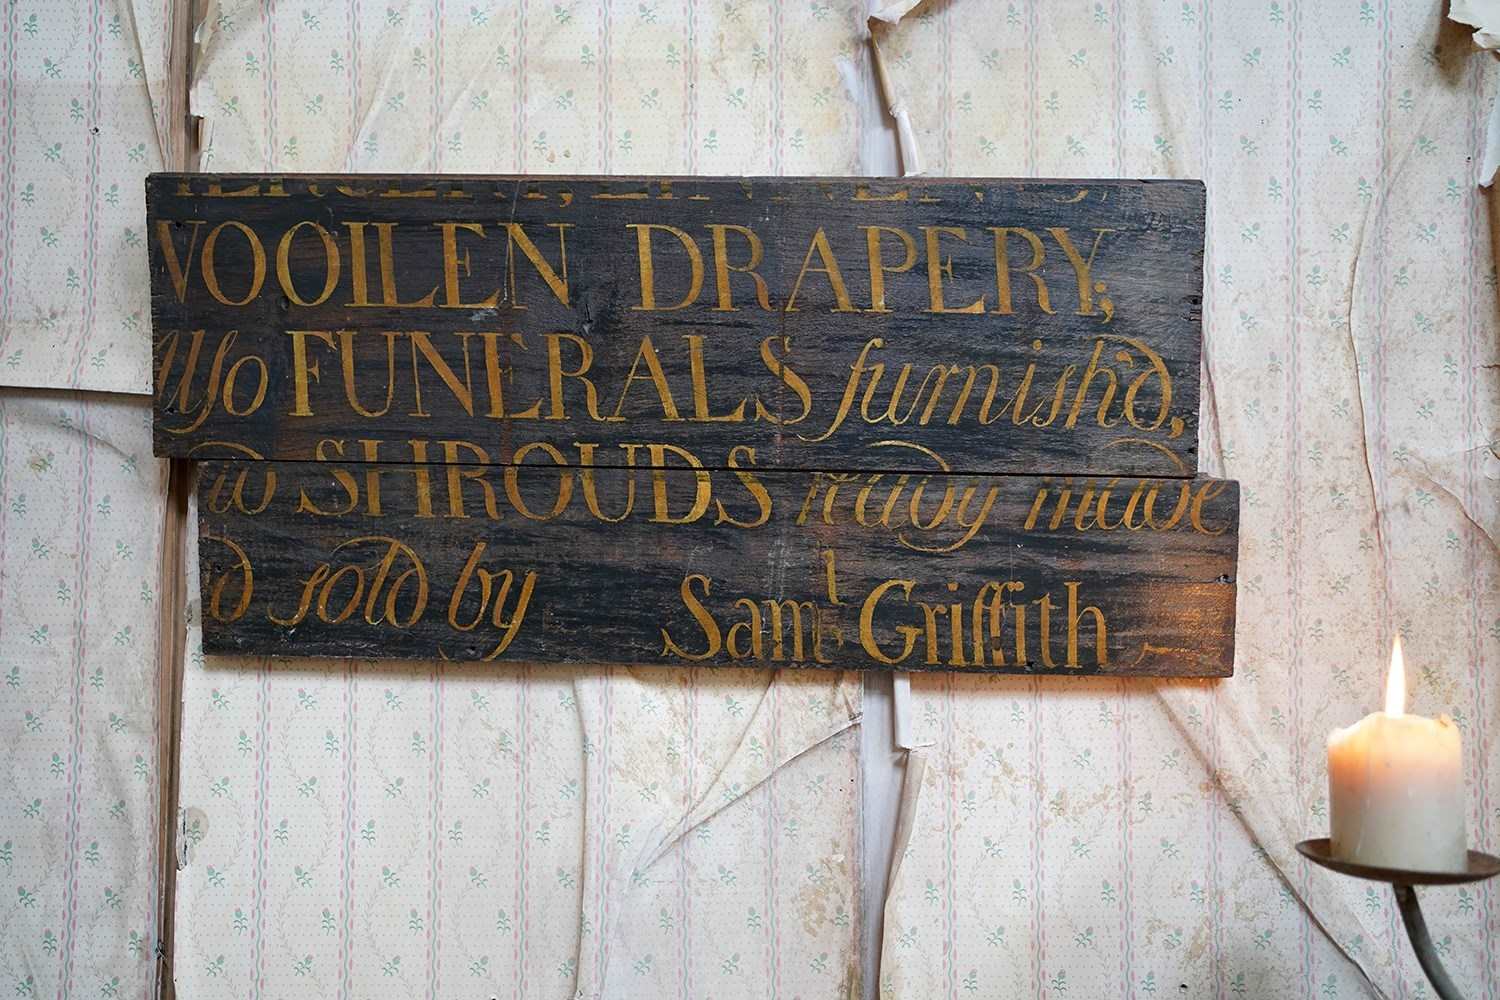 WOOLLEN DRAPERY;
Also FUNERALS furnish'd,
SHROUDS ready made
sold by Saml. Griffith